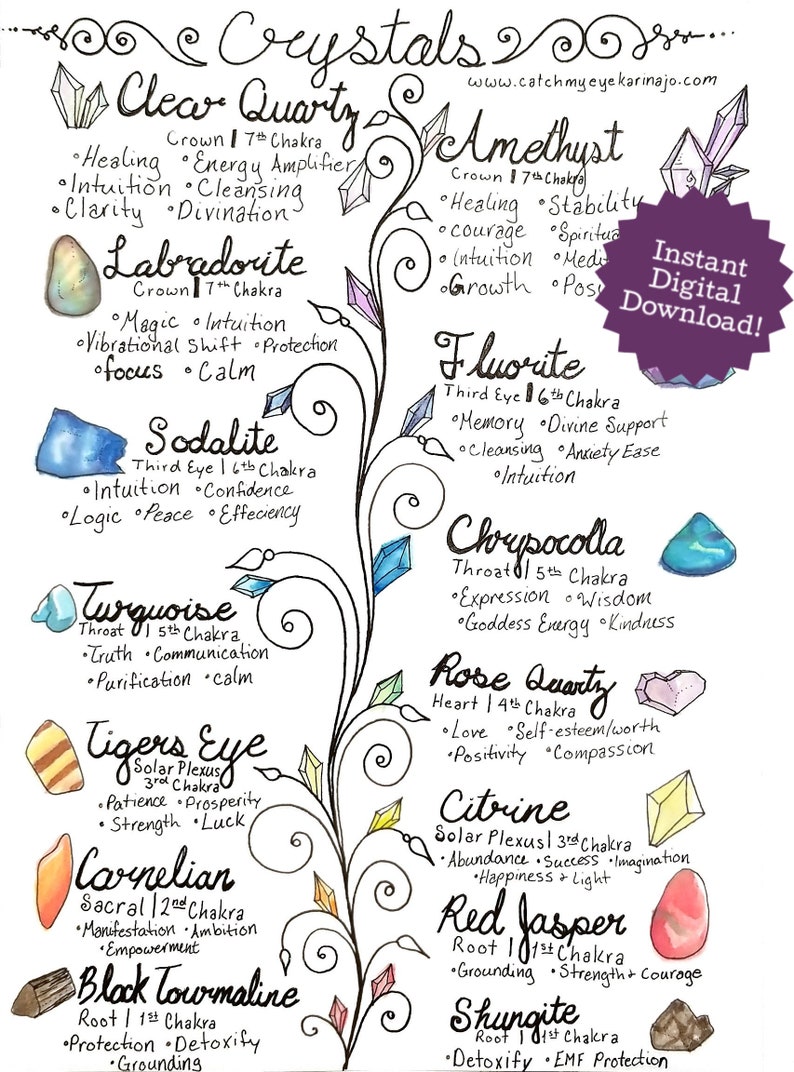 Crystals
www.catchmyeyekarinajo.com
Clear Quartz
Crown | 7th Chakra
•Healing •Energy Amplifier
•Intuition •Cleansing
•Clarity •Divination
Amethyst
Crown | 7th Chakra
•Healing •Stability
•courage
•Intuition
•Growth
Instant
Digital
Download!
Labradorite
Crown | 7th Chakra
•Magic •Intuition
•Vibrational Shift •Protection
•focus •Calm
Fluorite
Third Eye | 6th Chakra
•Memory •Divine Support
•Cleansing •Anxiety Ease
•Intuition
Sodalite
Third Eye | 6th Chakra
•Intuition •Confidence
•Logic •Peace •Effeciency
Chrysocolla
Throat | 5th Chakra
•Expression •Wisdom
•Goddess Energy •Kindness
Turquoise
Throat | 5th Chakra
•Truth •Communication
•Purification •calm
Rose Quartz
Heart | 4th Chakra
•Love •Self-esteem/worth
•Positivity •Compassion
Tigers Eye
Solar Plexus
3rd Chakra
•Patience •Prosperity
•Strength •Luck
Citrine
Solar Plexus | 3rd Chakra
•Abundance •Success •Imagination
•Happiness & Light
Carnelian
Sacral | 2nd Chakra
•Manifestation •Ambition
•Empowerment
Red Jasper
Root | 1st Chakra
•Grounding •Strength & Courage
Black Tourmaline
Root | 1st Chakra
•Protection •Detoxify
•Grounding
Shungite
Root | 1st Chakra
•Detoxify •EMF Protection